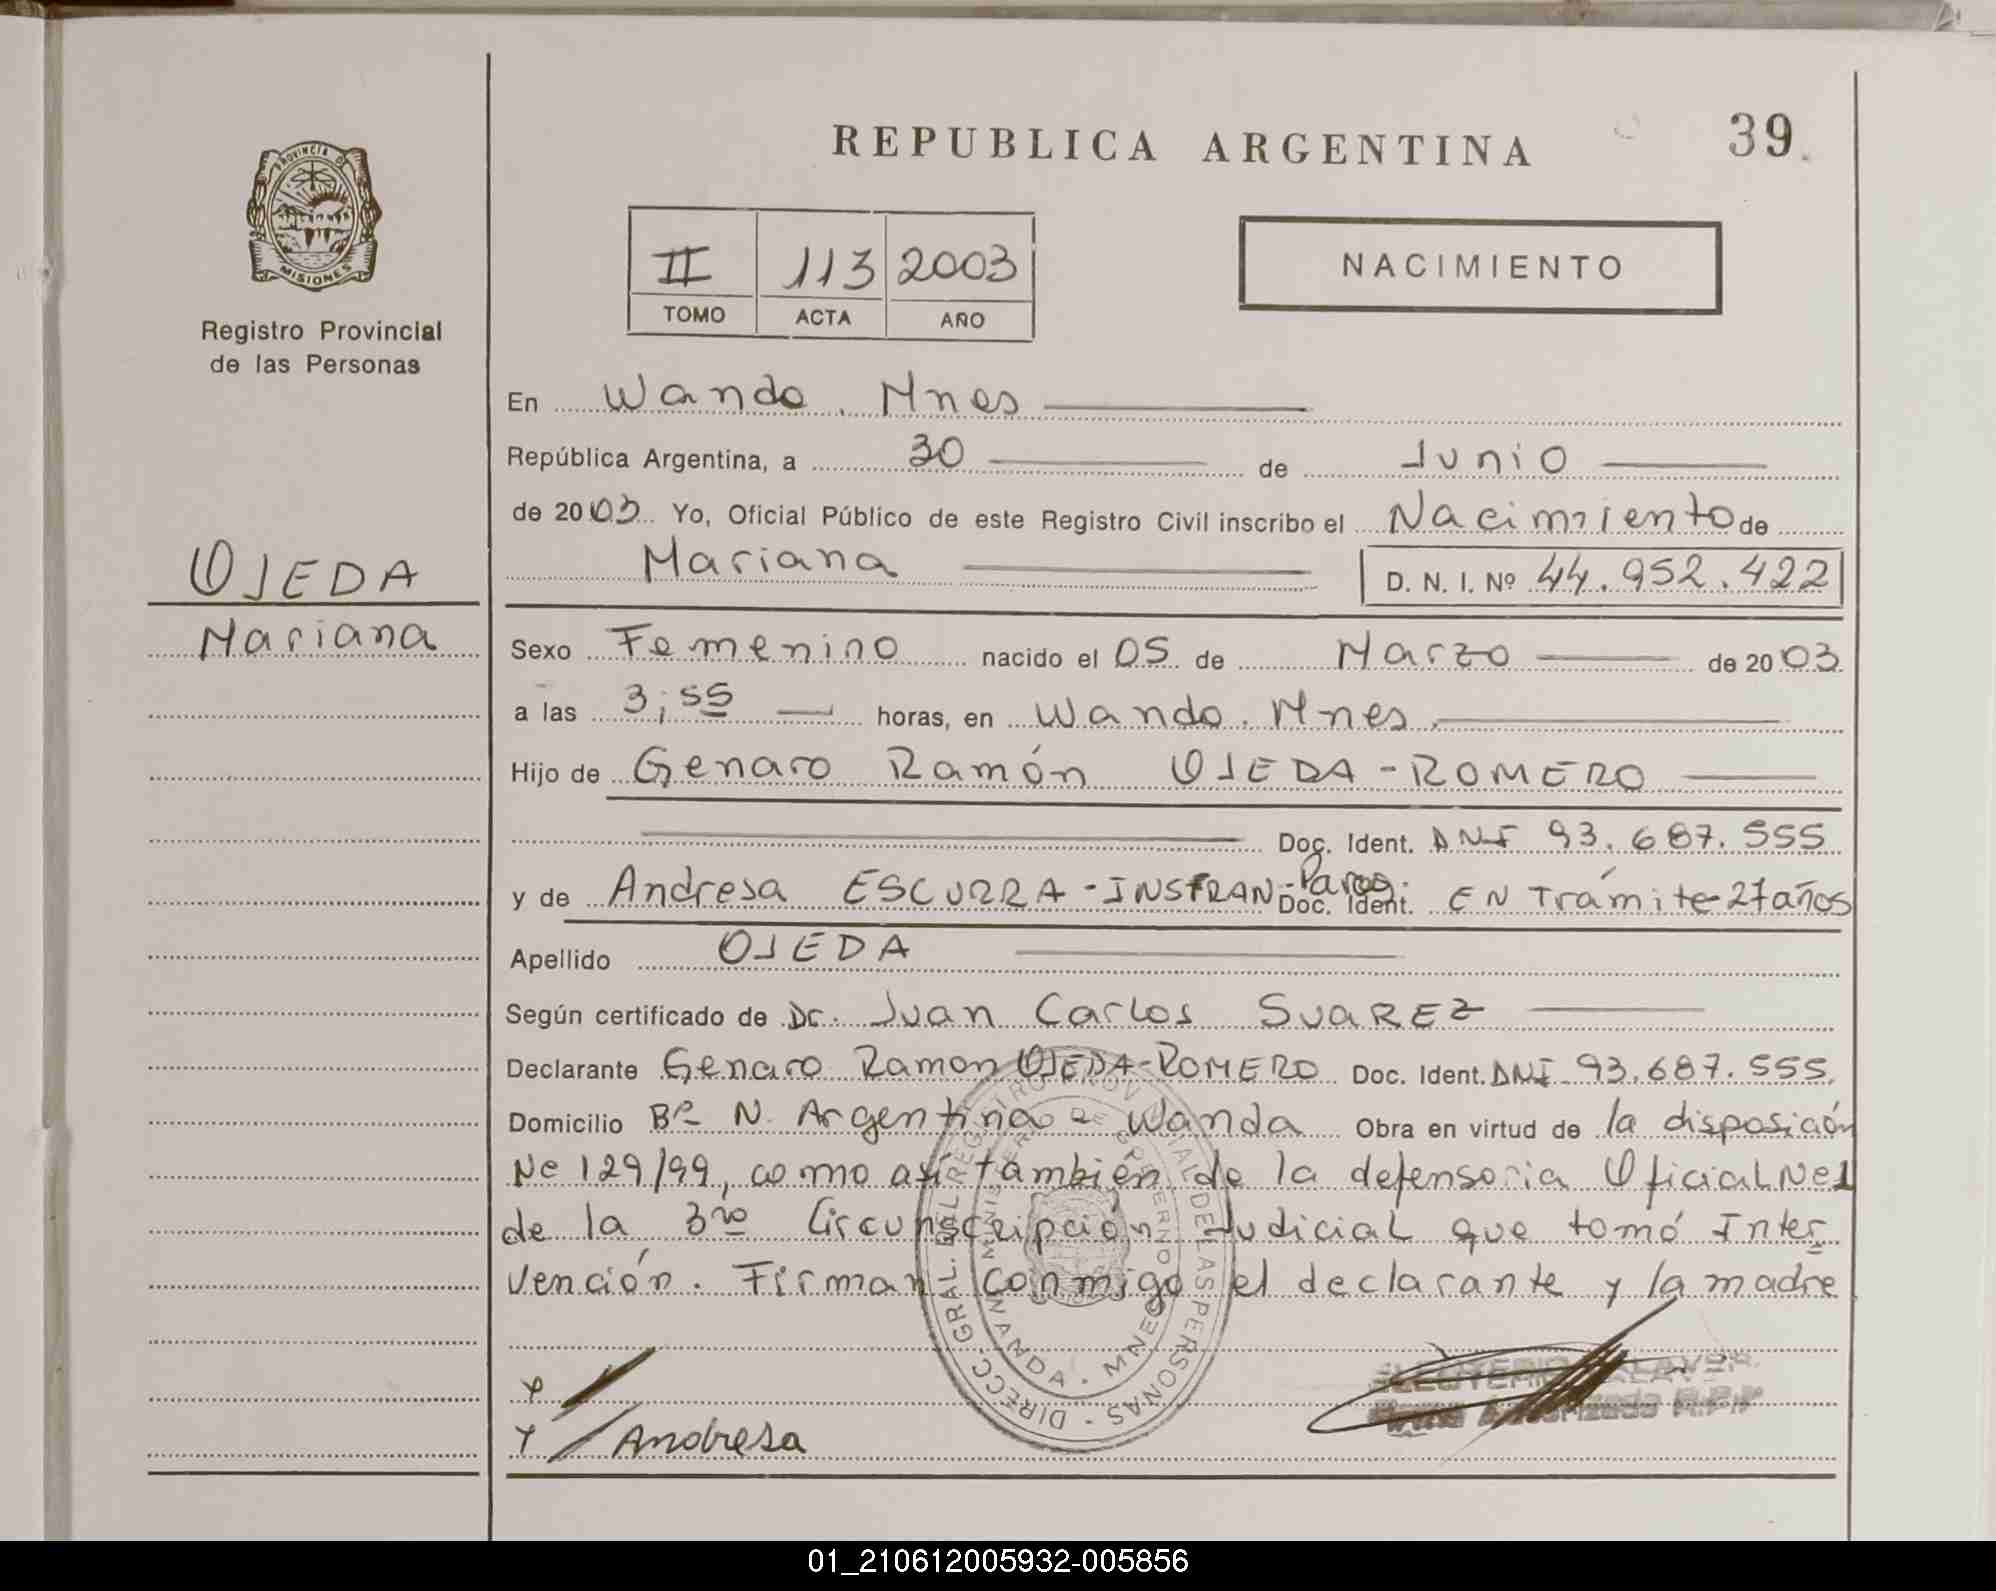 REPUBLICA ARGENTINA
39
PROVINCIA DE
MISIONES
Registro Provincial
de las Personas
II 113 2003
TOMO ACTA AÑO
NACIMIENTO
En Wanda. Mnes
República Argentina, a 30 de Junio
de 2003 Yo, Oficial Público de este Registro Civil inscribo el Nacimiento de
Mariana D. N. I. Nº 44.952.422
OJEDA
Mariana
Sexo Femenino nacido el 05 de Marzo de 2003
a las 3;55 horas, en Wanda. Mnes.
Hijo de Genaro Ramón OJEDA-ROMERO
Doc. Ident. DNI 93.687.555
y de Andresa ESCURRA-INSFRAN-Parag. Doc. Ident. EN Trámite-27años
Apellido OJEDA
Según certificado de Dr. Juan Carlos SUAREZ
Declarante Genaro Ramon OJEDA-ROMERO Doc. Ident. DNI 93.687.555.
Domicilio Bº N. Argentina - Wanda Obra en virtud de la disposición
Nº 129/99, como así también de la defensoria Oficial Nº1
de la 3ra Circunscripción Judicial que tomó Inter
vención. Firman conmigo el declarante y la madre
DIRECC. GRAL. DEL REGISTRO PROVINCIAL DE LAS PERSONAS
MINISTERIO DE GOBIERNO
WANDA - MNES
Andresa
ELEUTERIO
Firma Autorizada R.P.P.
01_210612005932-005856